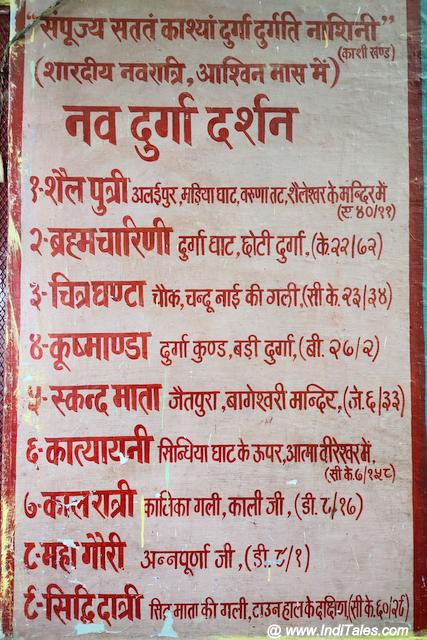 "संपूज्य सततं काश्यां दुर्गा दुर्गति नाशिनी"
(काशी खण्ड)
(शारदीय नवरात्रि, आश्विन मास में)
नव दुर्गा दर्शन
१-शैल पुत्री अलईपुर, मढ़िया घाट, वरुणा तट, शैलेश्वर के मन्दिर में
(ए ४०/११)
२-ब्रह्मचारिणी दुर्गा घाट, छोटी दुर्गा, (के.२२/७२)
३- चित्रघण्टा चौक, चन्दू नाई की गली, (सी के.२३/३४)
४-कूष्माण्डा दुर्गा कुण्ड, बड़ी दुर्गा, (बी. २७/२)
५-स्कन्द माता जैतपुरा, बागेश्वरी मन्दिर, (जे.६/३३)
६-कात्यायनी सिन्धिया घाट के ऊपर, आत्मा वीरेश्वर में,
(सी के.७/१५८)
७-काल रात्री कालिका गली, काली जी, (डी. ८/१७)
८-महा गौरी अन्नपूर्णा जी, (डी. ८/१)
९-सिद्धिदात्री सिद्ध माता की गली, टाउन हाल के दक्षिण (सी के.६०/२९)
@ www.IndiTales.com